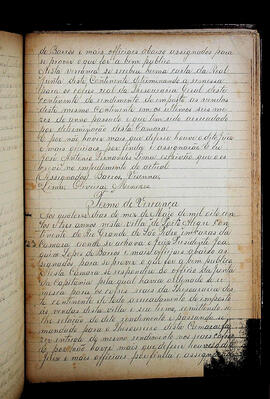 de Barros e mais officiaes abaixo assignados para
se prover o que for a bem publico
Nesta vereança se recebeu huma carta da Real
Junta deste Continente determinando a remessa
para os cofres real da Thesouraria Geral deste
continente do rendimento do imposto as vendas
deste mesmo Continente nos ultimos seis me-
zes do anno passado o que tem sido arrecadado
por determinação desta Camara
E por não haver mais que deferir houve o dito Juiz
e mais officiaes, por finda e assignarão E eu
José Antonio Fernandes Lima escrivão que o es-
crevi no impedimento do actual
Assignados Barros, Vianna,
Lima, Oliveira, Menezes
Termo de Vereança
Aos quatorze dias do mez de Maio de mil oito cen-
tos e tres annos nesta villa de Porto Alegre Con-
tinente do Rio Grande de São Pedro em casas da
Camara aonde se achava o Juiz Presidente Joa-
quim Lopes de Barros e mais officiaes abaixo as-
signados para se prover o que for a bem publico
Nesta Camara se respondeu ao officio da Junta
da Capitania pela qual havia ordenado a re-
messa para os cofres reaes da Thesouraria des-
te continente de todo arrecadamento do imposto
as vendas desta villa e seu termo, remettendo-se
lhe relação do dito rendimento e passando-se
mandado para o Thesoureiro desta Camara fa-
zer entrega do mesmo rendimento nos reaes cofres
E por não haver mais que deferir houve o dito
Juiz e mais officiaes por finda e assignarão